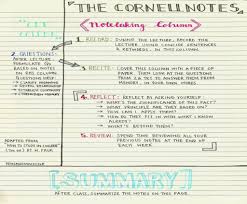 THE CORNELL NOTES
Notetaking Column
1. RECORD: DURING THE LECTURE, RECORD THE
LECTURE USING CONCISE SENTENCES
& KEYWORDS, IN THIS COLUMN.
2. QUESTIONS:
AFTER LECTURE,
FORMULATE Qs
BASED ON NOTES
IN RED COLUMN.
3. RECITE: COVER THIS COLUMN WITH A PIECE OF
PAPER. THEN LOOK AT THE QUESTIONS
4. REFLECT: REFLECT BY ASKING YOURSELF:
WHAT'S THE SIGNIFICANCE OF THIS FACT?
WHAT PRINCIPLE ARE THEY BASED ON?
HOW CAN I APPLY THEM?
HOW DO THEY FIT IN WITH WHAT I
KNOW?
WHAT'S BEYOND THEM?
5. REVIEW: SPEND TIME REVIEWING ALL YOUR
PREVIOUS NOTES AT THE END OF EACH
WEEK.
ADAPTED FROM
"HOW TO STUDY IN COLLEGE"
[SUMMARY]
AFTER CLASS, SUMMARIZE THE NOTES ON THIS PAGE.